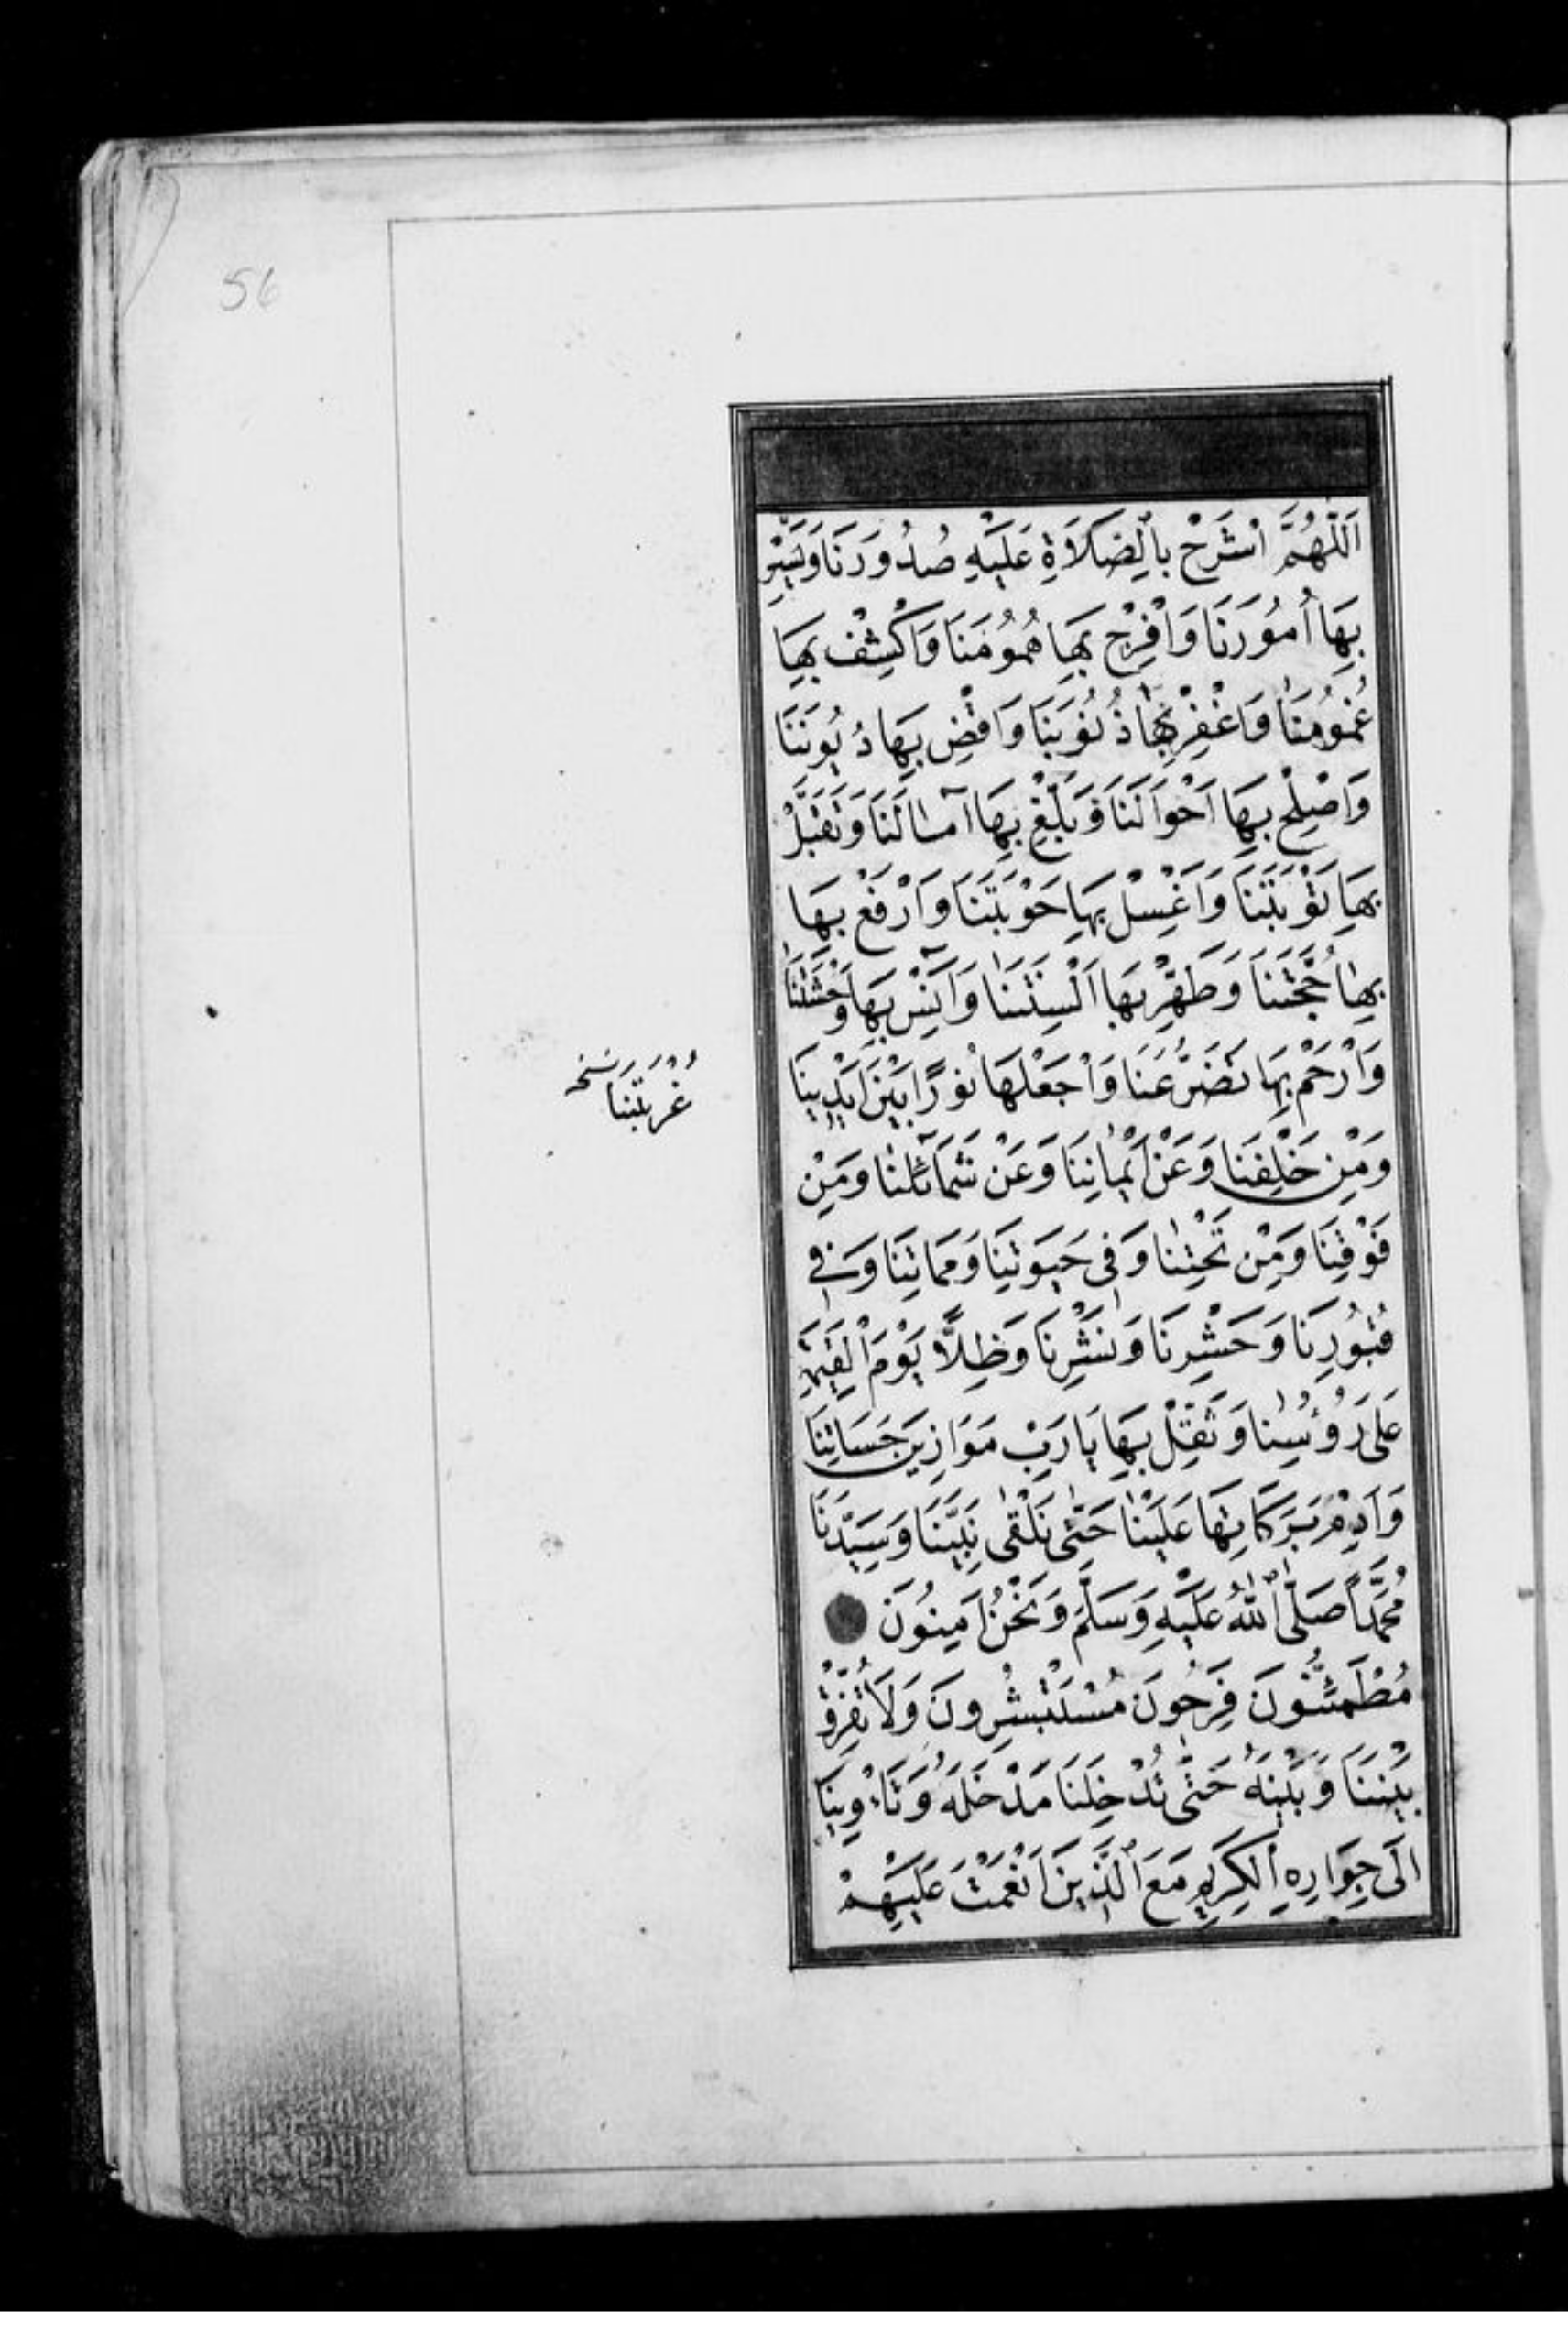 56
اَللّٰهُمَّ اشْرَحْ بِالصَّلَاةِ عَلَيْهِ صُدُورَنَا وَيَسِّرْ
بِهَا اُمُورَنَا وَافْرِجْ بِهَا هُمُومَنَا وَاكْشِفْ بِهَا
غُمُومَنَا وَاغْفِرْ بِهَا ذُنُوبَنَا وَاقْضِ بِهَا دُيُونَنَا
وَاَصْلِحْ بِهَا اَحْوَالَنَا وَبَلِّغْ بِهَا آمَالَنَا وَتَقَبَّلْ
بِهَا تَوْبَتَنَا وَاغْسِلْ بِهَا حَوْبَتَنَا وَارْفَعْ بِهَا
بِهَا حُجَّتَنَا وَطَهِّرْ بِهَا اَلْسِنَتَنَا وَآنِسْ بِهَا وَحْشَتَنَا
وَارْحَمْ بِهَا تَضَرُّعَنَا وَاجْعَلْهَا نُورًا بَيْنَ اَيْدِينَا
غُرْبَتَنَا نسخه
وَمِنْ خَلْفِنَا وَعَنْ اَيْمَانِنَا وَعَنْ شَمَآئِلِنَا وَمِنْ
فَوْقِنَا وَمِنْ تَحْتِنَا وَفِى حَيٰوتِنَا وَمَمَاتِنَا وَفِى
قُبُورِنَا وَحَشْرِنَا وَنَشْرِنَا وَظِلًّا يَوْمَ الْقِيٰمَةِ
عَلَى رُؤُسِنَا وَثَقِّلْ بِهَا يَا رَبِّ مَوَازِينَ حَسَنَاتِنَا
وَاَدِمْ بَرَكَاتِهَا عَلَيْنَا حَتّٰى نَلْقٰى نَبِيَّنَا وَسَيِّدَنَا
مُحَمَّدًا صَلَّى اللّٰهُ عَلَيْهِ وَسَلَّمَ وَنَحْنُ اٰمِنُونَ
مُطْمَئِنُّونَ فَرِحُونَ مُسْتَبْشِرُونَ وَلَا تُفَرِّقْ
بَيْنَنَا وَبَيْنَهُ حَتّٰى تُدْخِلَنَا مَدْخَلَهُ وَتَاْوِيَنَا
اِلَى جِوَارِهِ الْكَرِيمِ مَعَ الَّذِينَ اَنْعَمْتَ عَلَيْهِمْ